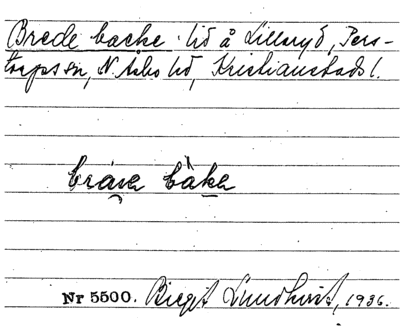 Brede backe lid å Lilleryd, Pers-
torps sn, N. Åsbo hd, Kristianstads l.
bráʒa bàka
Nr 5500. Birgit Lundkvist, 1936.